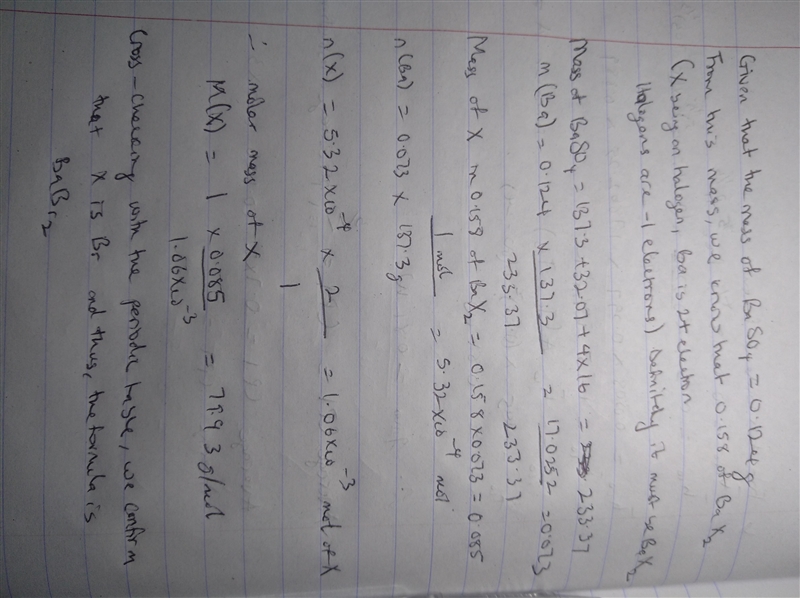 Given that the mass of BaSO4 = 0.124g
From this mass, we know that 0.158 of BaX2
(X being an halogen, Ba is 2+ electron
Halogens are -1 electrons) Definitely it must be BaX2
Mass of BaSO4 = 137.3 + 32.07 + 4x16 = 233.37
m(Ba) = 0.124 x 137.3 / 233.37 = 17.0252 / 233.37 = 0.073
Mass of X in 0.158 of BaX2 = 0.158 x 0.073 = 0.085
n(Ba) = 0.073 x 1 mol / 137.3g = 5.32x10^-4 mol
n(X) = 5.32x10^-4 x 2 / 1 = 1.06x10^-3 mol of X
∴ molar mass of X
M(X) = 1 x 0.085 / 1.06x10^-3 = 79.93 g/mol
Cross-checking with the periodic table, we confirm
that X is Br and thus, the formula is
BaBr2